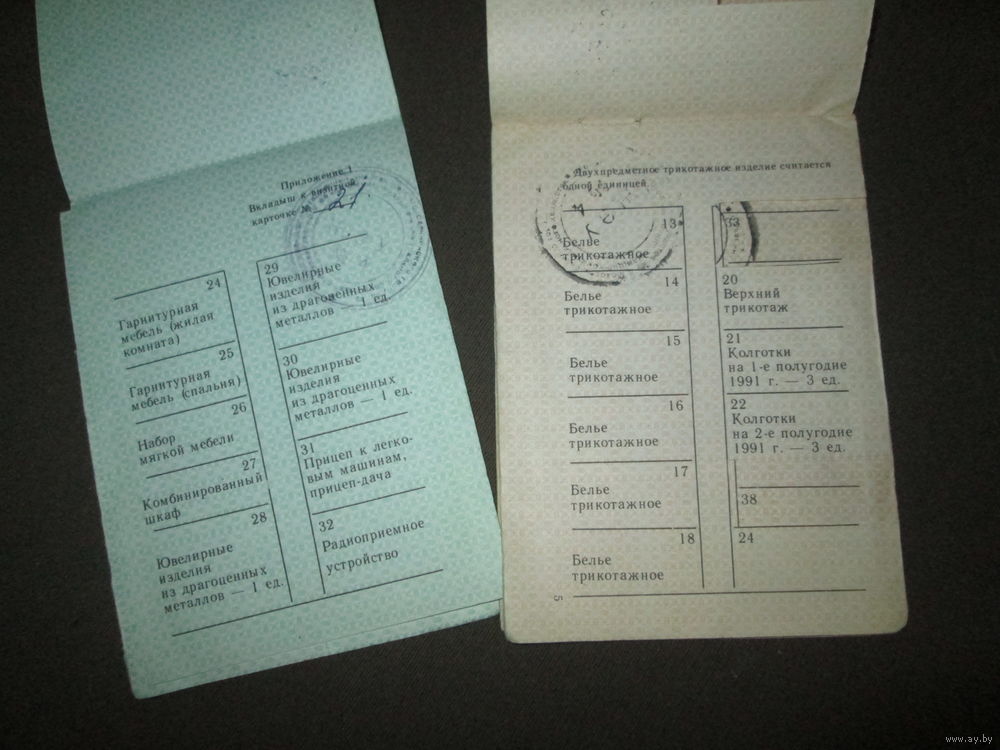 Приложение 1
Вкладыш к визитной
карточке № 21
24
Гарнитурная
мебель (жилая
комната)
25
Гарнитурная
мебель (спальня)
26
Набор
мягкой мебели
27
Комбинированный
шкаф
28
Ювелирные
изделия
из драгоценных
металлов — 1 ед.
29
Ювелирные
изделия
из драгоценных
металлов — 1 ед.
30
Ювелирные
изделия
из драгоценных
металлов — 1 ед.
31
Прицеп к легко-
вым машинам,
прицеп-дача
32
Радиоприемное
устройство
Двухпредметное трикотажное изделие считается
одной единицей
13
Белье
трикотажное
14
Белье
трикотажное
15
Белье
трикотажное
16
Белье
трикотажное
17
Белье
трикотажное
18
Белье
трикотажное
33
20
Верхний
трикотаж
21
Колготки
на 1-е полугодие
1991 г. — 3 ед.
22
Колготки
на 2-е полугодие
1991 г. — 3 ед.
38
24
5
www.ay.by